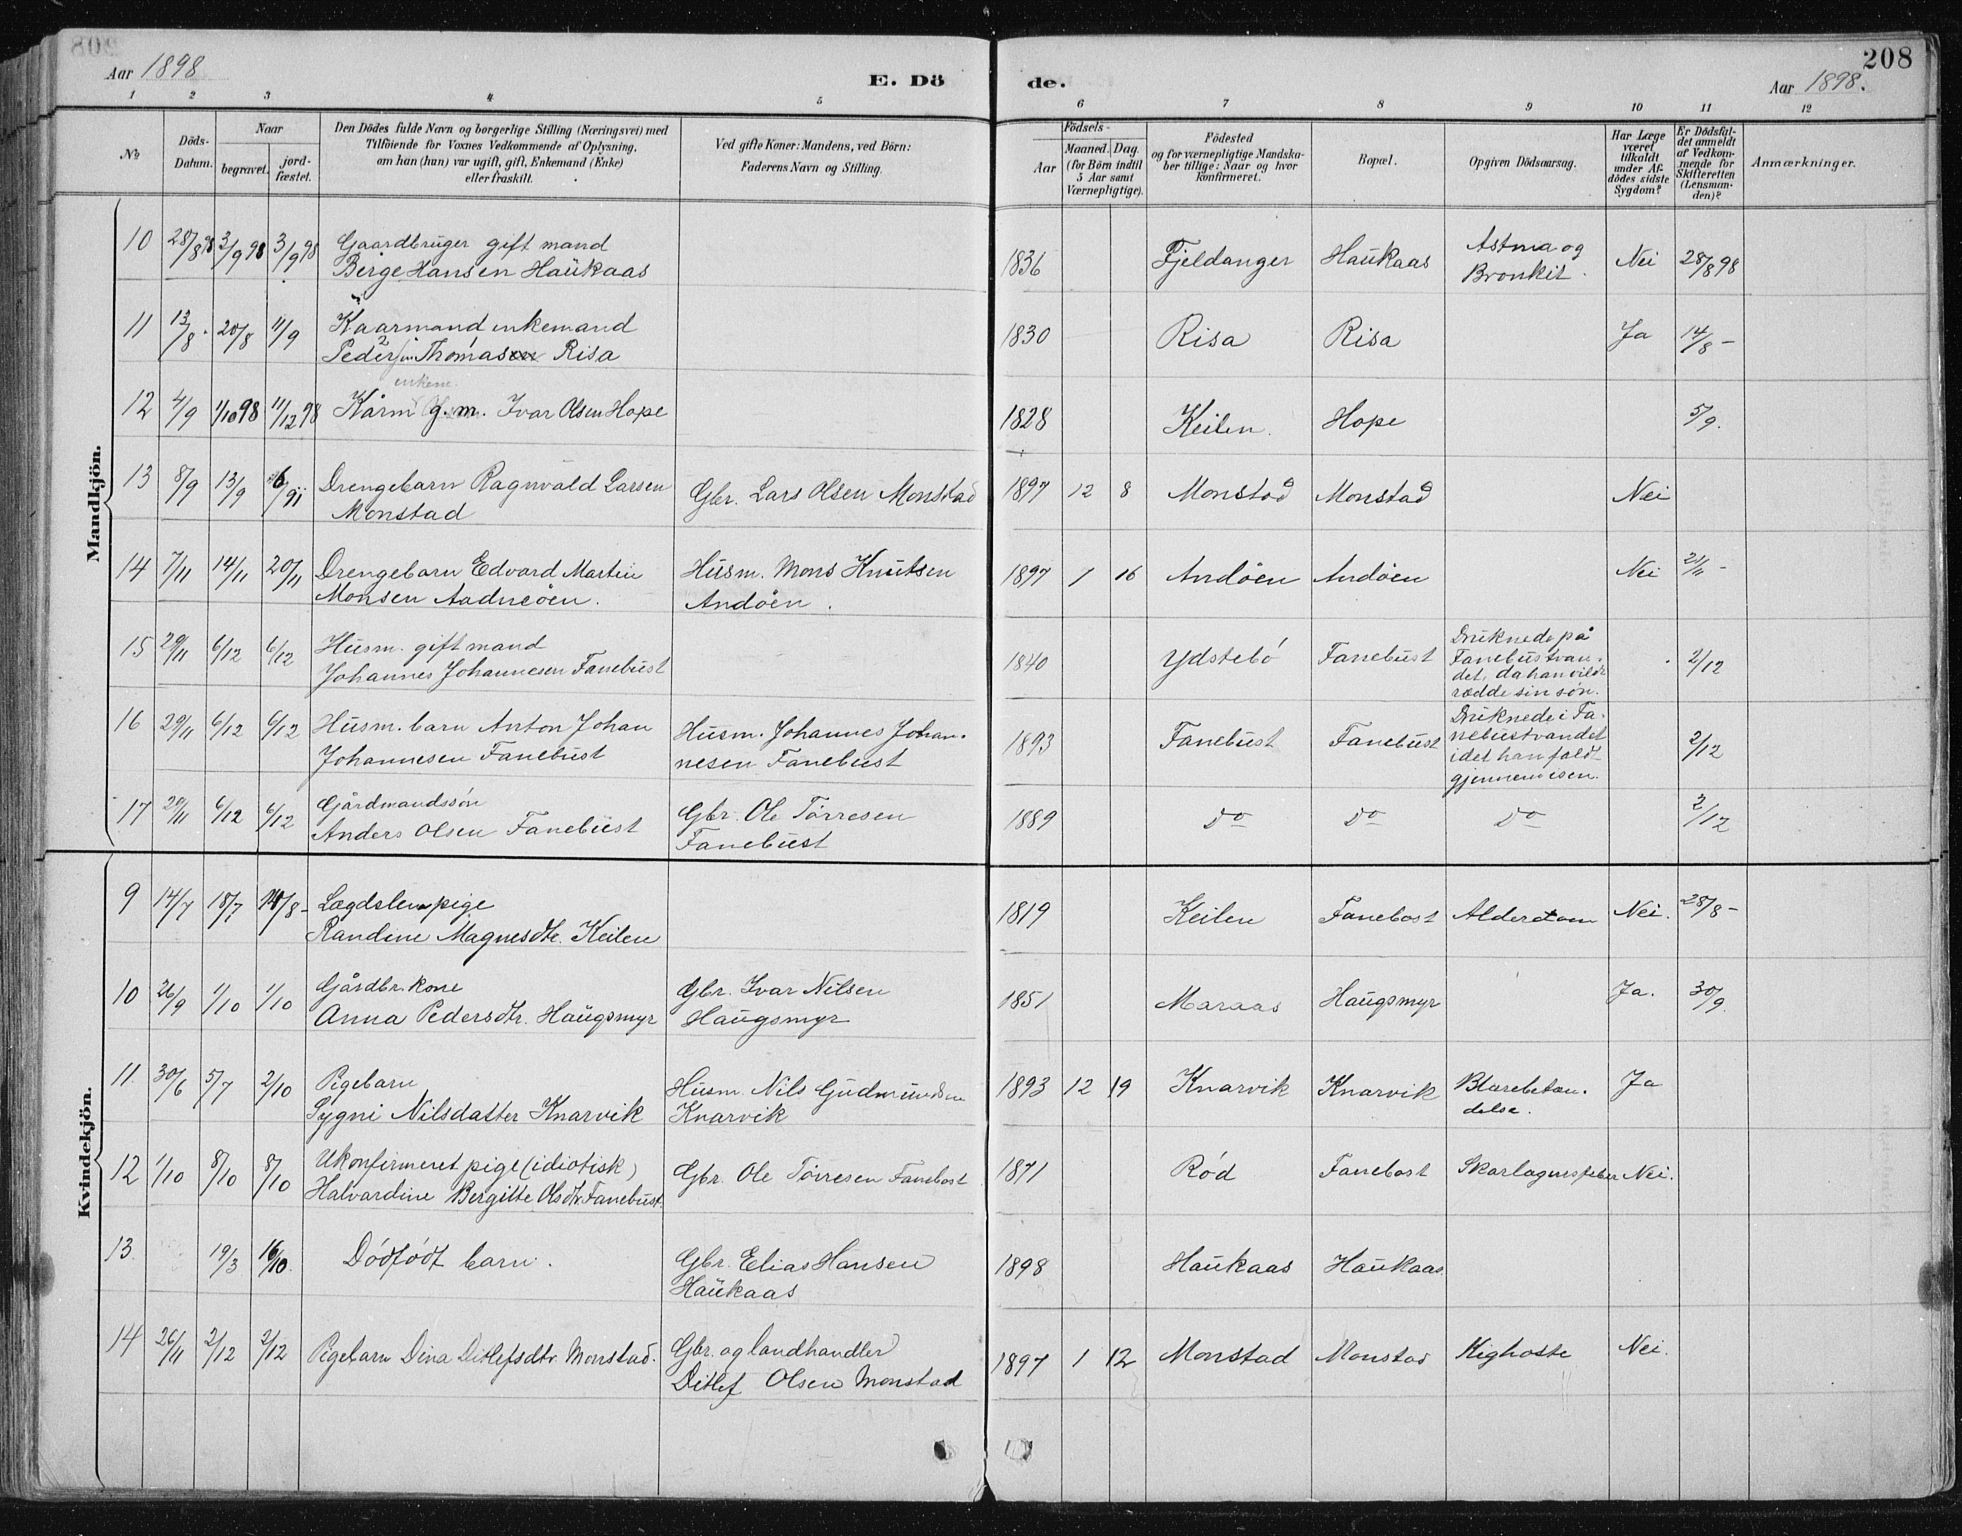 208
Aar 1898
E. Dö
de.
Aar 1898.
1 2 3 4 5 6 7 8 9 10 11 12
№
Döds-Datum.
Naar
begravet.
jord-fæstet.
Den Dödes fulde Navn og borgerlige Stilling (Næringsvei) med
Tilföiende for Voxnes Vedkommende af Oplysning,
om han (hun) var ugift, gift, Enkemand (Enke)
eller fraskilt.
Ved gifte Koner: Mandens, ved Börn:
Faderens Navn og Stilling.
Födsels-
Aar
Maaned. Dag.
(for Börn indtil
5 Aar samt
Værnepligtige).
Födested
og for værnepligtige Mandska-
ber tillige: Naar og hvor
konfirmeret.
Bopæl.
Opgiven Dödsaarsag.
Har Læge
været
tilkaldt
under Af-
dödes sidste
Sygdom?
Er Dödsfal-
det anmeldt
af Vedkom-
mende for
Skifteretten
(Lensman-
den)?
Anmærkninger.
Mandkjön.
10 28/8 98 3/9 98 3/9 98 Gaardbruger gift mand
Berge Hansen Haukaas
1836 Fjeldanger Haukaas Astma og
Bronkit. Nei 28/8 98
11 13/8. 20/8 11/9 Kaarmand enkemand
Peder Thomas Risa
1830 Risa Risa Ja 14/8 -
enkem.
12 4/9 1/10 98 11/12 98 Kårm g.m. Ivar Olsen Hope
1828 Keilen. Hope 5/9.
13 8/9 13/9 Drengebarn Ragnvald Larsen
Monstad
Gbr. Lars Olsen Monstad
1897 12 8 Monstad Monstad Nei
14 7/11 14/11 20/11 Drengebarn Edvard Martin
Monsen Aadneöen.
Husm. Mons Knutsen
Andöen.
1897 1 16 Andöen Andöen Nei 21/11 -
15 29/11 6/12 6/12 Husm. gift mand
Johannes Johannesen Fanebust
1840 Ydstebö Fanebust Druknede på
Fanebustvan-
det, da han vilde
rædde sin søn. 2/12
16 29/11 6/12 6/12 Husm. barn Anton Johan
Johannesen Fanebust
Husm. Johannes Johan-
nesen Fanebust
1893 Fanebust Fanebust Druknede i Fa-
nebustvandet
idet han faldt
gjennem isen. 2/12
17 29/11 6/12 6/12 Gårdmandssøn
Anders Olsen Fanebust
Gbr. Ole Tørresen
Fanebust
1889 do do do 2/12
Kvindekjön.
9 14/7 18/7 Lægdslem pige
Randine Magnesdtr. Keilen
1819 Keilen Fanebost Alderdom Nei. 28/8 -
10 26/9 1/10 1/10 Gårdbr. kone
Anna Pedersdtr. Haugsmyr
Gbr. Ivar Nilsen
Haugsmyr
1851 Maraas Haugsmyr Ja. 30/9.
11. 30/6 5/7 2/10 Pigebarn
Sygni Nilsdatter Knarvik
Husm. Nils Gudmundsen
Knarvik
1893 12 19 Knarvik Knarvik Blærebetæn-
delse. Ja
12 1/10 8/10 8/10 Ukonfirmeret pige (idiotisk)
Halvardine Bergitte Olsdtr. Fanebust.
Gbr. Ole Tørresen Fanebost
1871 Rød Fanebost Skarlagensfeber Nei.
13. 19/3 16/10. Dødfødt barn.
Gbr. Elias Hansen
Haukaas
1898 Haukaas Haukaas
14 26/11 2/12 2/12 Pigebarn Dina Ditlefsdtr. Monstad.
Gbr. og landhandler
Ditlef Olsen Monstad
1897 1 12 Monstad Monstad Kighoste Nei.